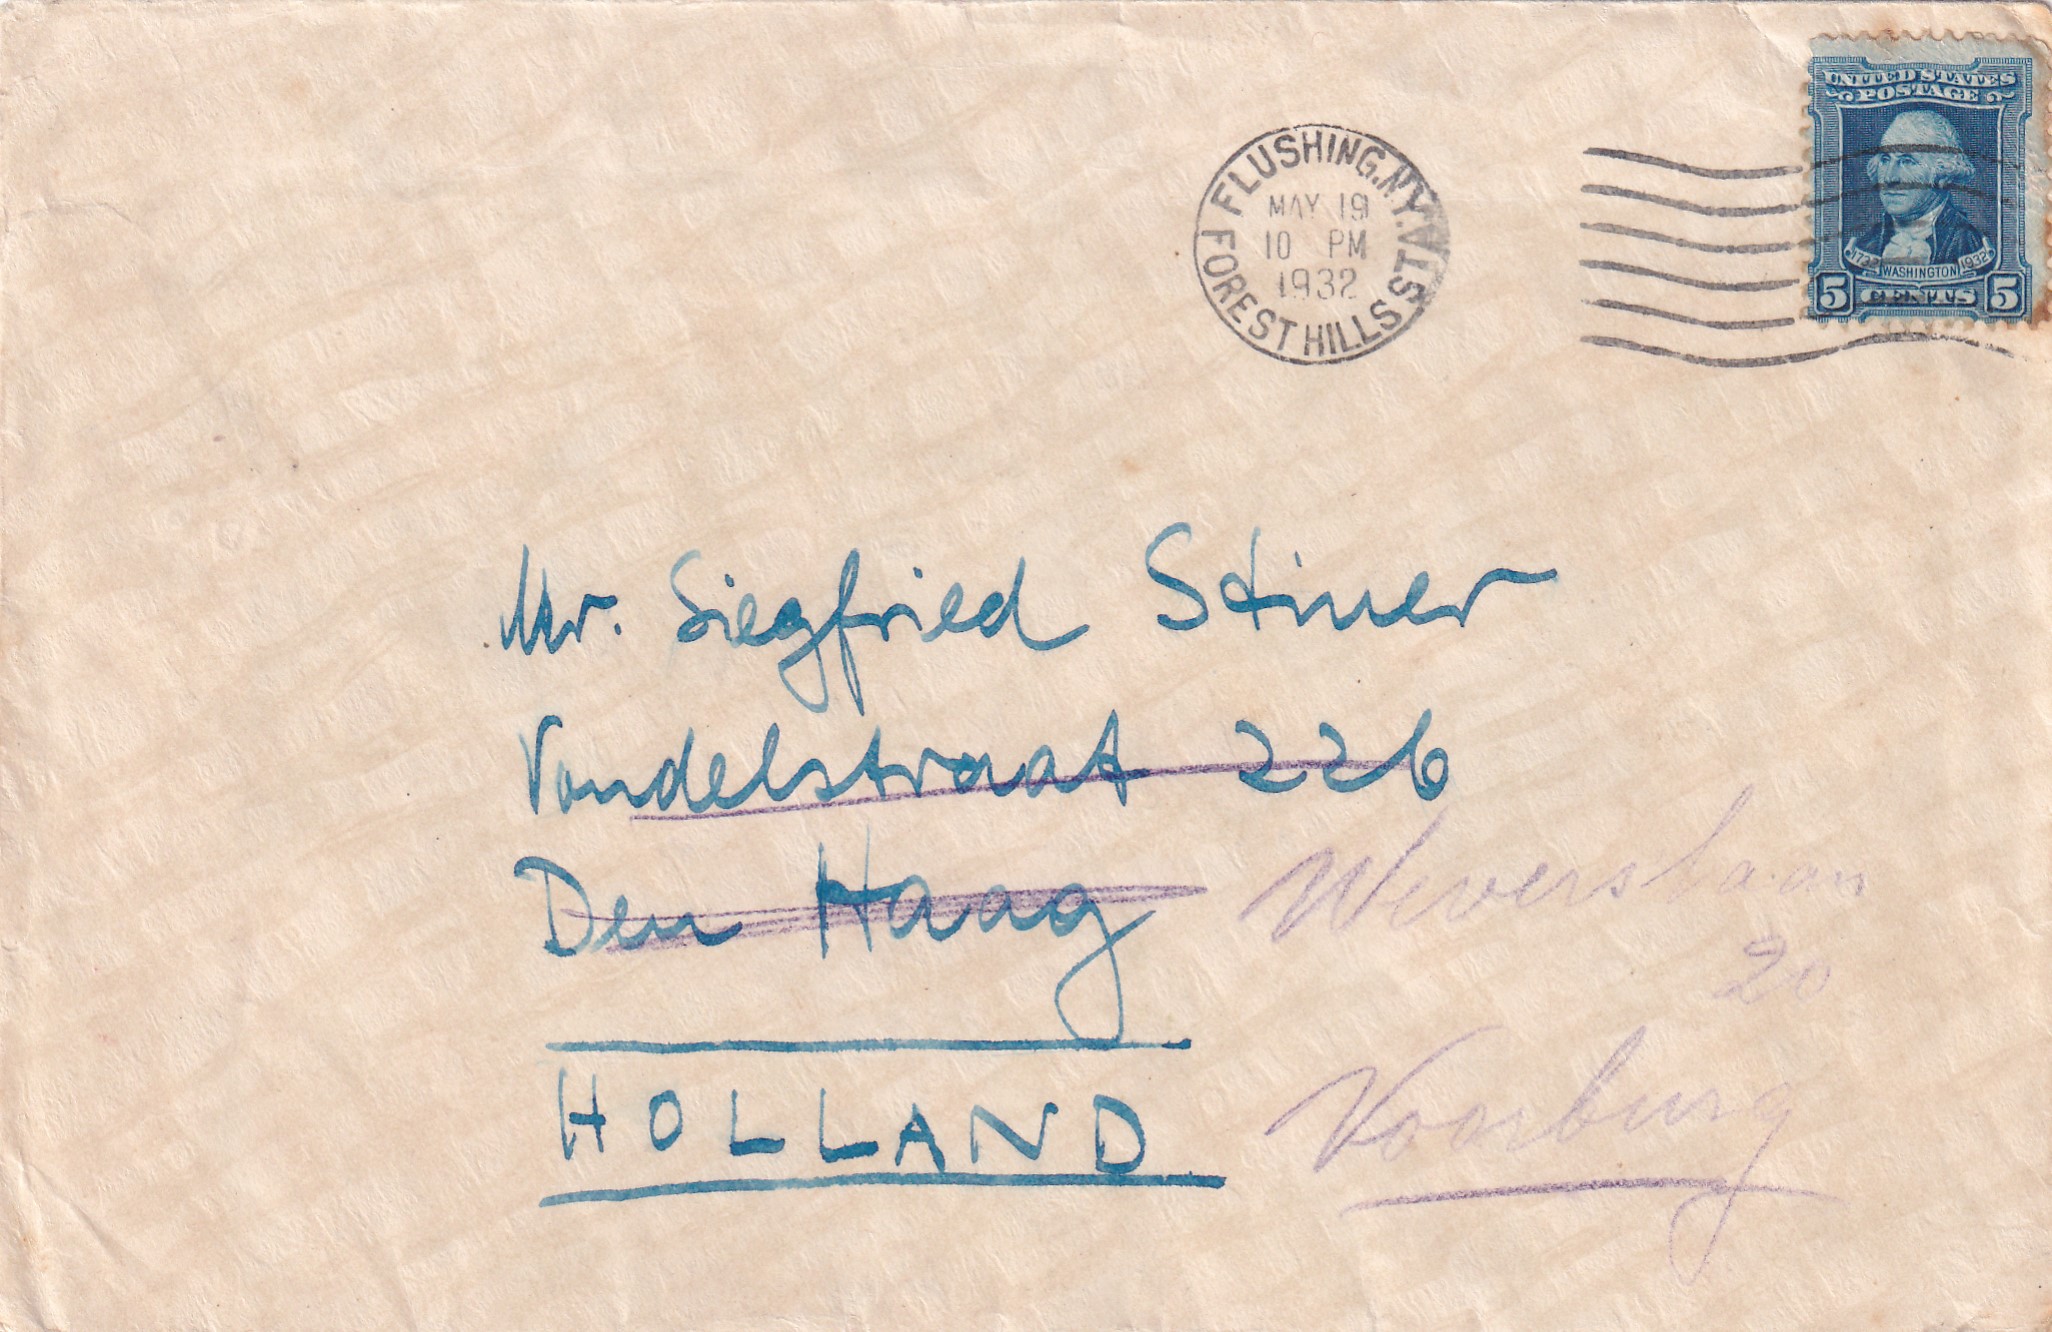 UNITED STATES
POSTAGE
1732 WASHINGTON 1932
5 CENTS 5
FLUSHING, N.Y.
MAY 19
10 PM
1932
FOREST HILLS STA.
Mr. Siegfried Stiner
Vondelstraat 226
Den Haag
HOLLAND
Weverslaan
20
Voorburg